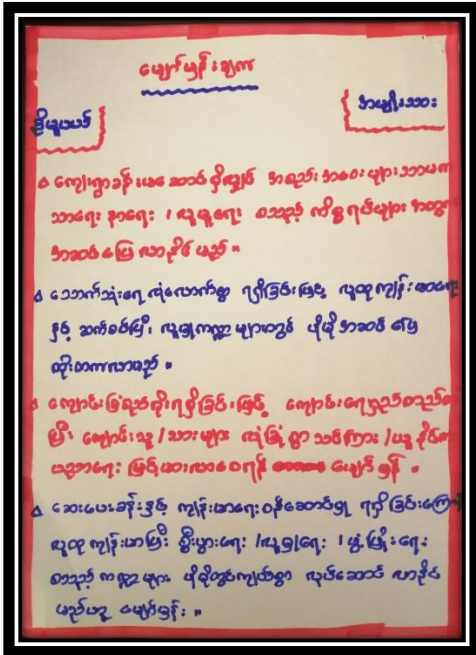 မျှော်မှန်းချက်
ဒီမူပယ်
အမျိုးသား
ကျေးရွာခန်းမဆောင် ရှိလျှင် အစည်းအဝေးများသာမက
သာရေး နာရေး / လူမှုရေး စသည့် ကိစ္စရပ်များ အတွက်
အဆင်ပြေ လာနိုင် မည်။
သောက်သုံးရေ လုံလောက်စွာ ရရှိခြင်းဖြင့် လူထုကျန်းမာရေး
နှင့် ဆက်စပ်ပြီး လူမှုကဏ္ဍ များတွင် ပိုမို အဆင်ပြေ
တိုးတက်လာမည်။
ကျောင်းခြံစည်းရိုး ရရှိခြင်းဖြင့် ကျောင်းရေရှည်တည်တံ့
ပြီး ကျောင်းသူ / သားများ လုံခြုံစွာ သင်ကြား / ယူနိုင်ကာ
ပညာရေး မြင့်မားလာစေရန် မျှော်မှန်း။
ဆေးပေးခန်းနှင့် ကျန်းမာရေးဝန်ဆောင်မှု ရရှိခြင်းကြောင့်
လူထု ကျန်းမာပြီး စီးပွားရေး / လူမှုရေး / ဖွံ့ဖြိုးရေး
စသည့် ကဏ္ဍများ ပိုမိုတွင်ကျယ်စွာ လုပ်ဆောင် လာနိုင်
မည်ဟု မျှော်မှန်း။